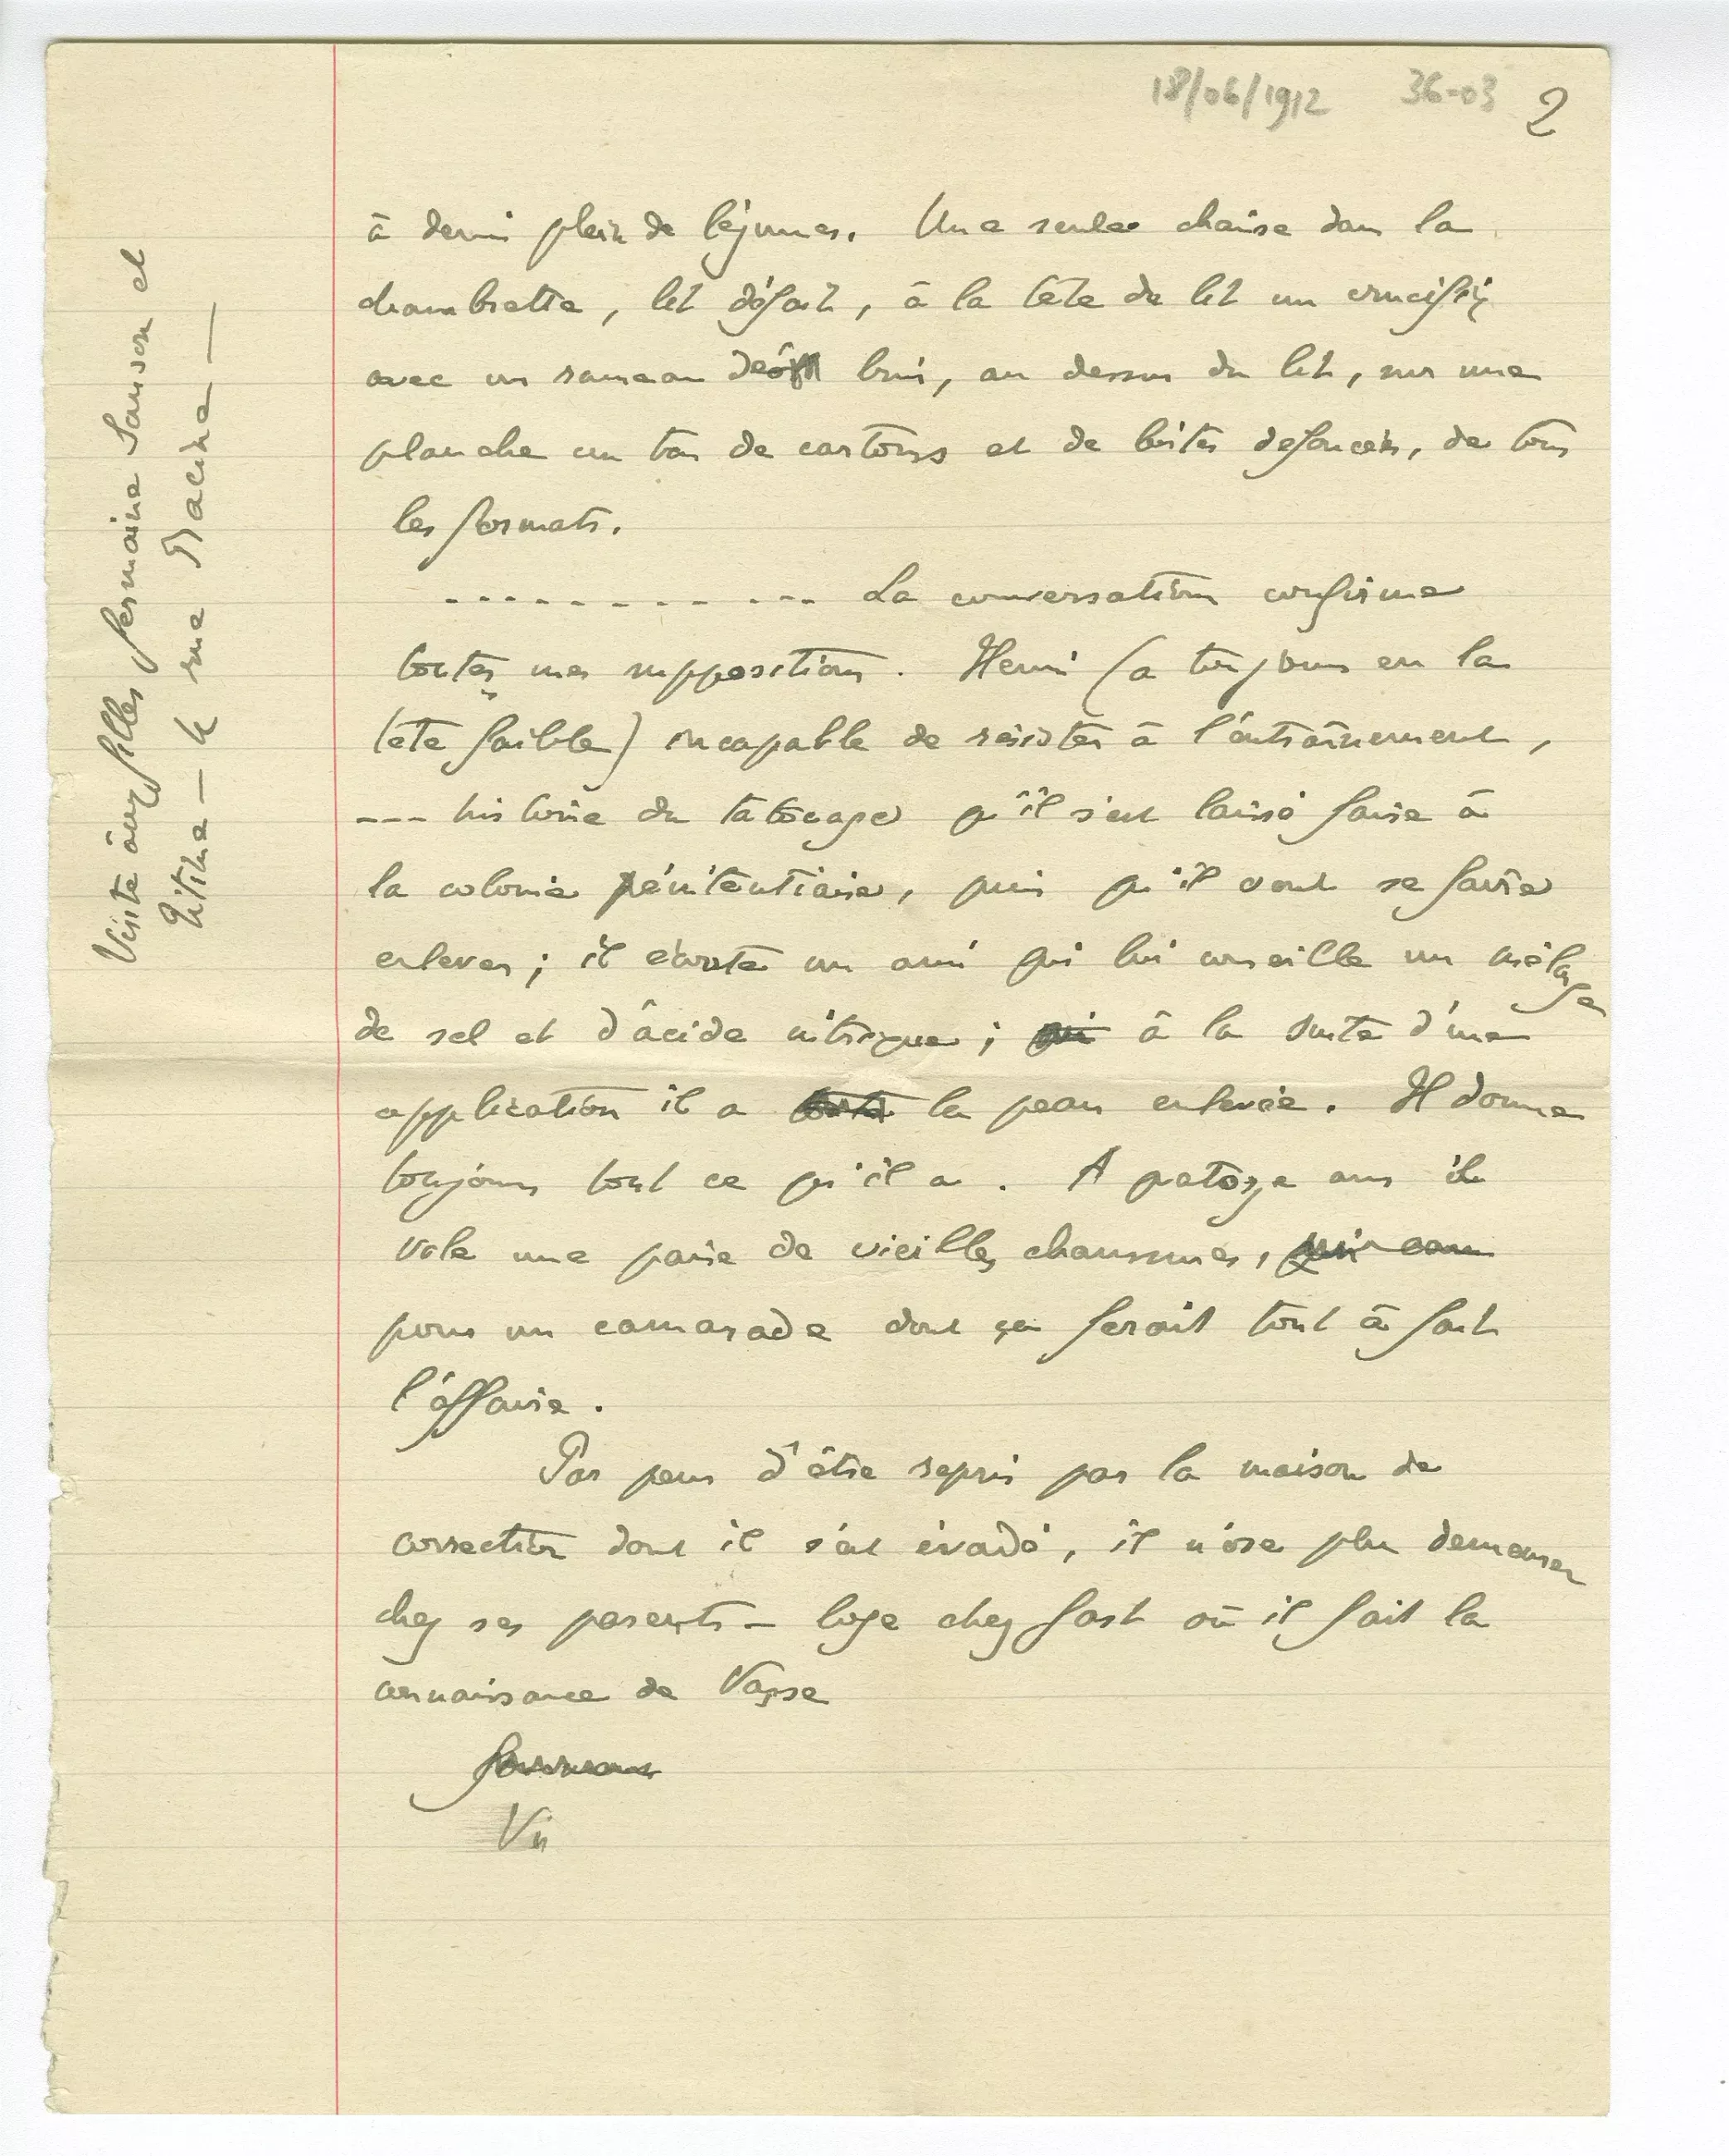 18/06/1912 36-03 2
à demi plein de légumes. Une seule chaise dans la
chambrette, lit défait, à la tête du lit un crucifix
avec un rameau de buis, au dessus du lit, sur une
planche un tas de cartons et de boites defoncées, de tous
les formats.
- - - - - - - - - - - - La conversation confirme
toutes mes suppositions. Henri (a toujours eu la
tête faible) incapable de résister à l'entraînement,
--- histoire du tatouage qu'il s'est laissé faire à
la colonie pénitentiaire, puis qu'il veut se faire
enlever; il écoute un ami qui lui conseille un mélange
de sel et d'acide nitrique; qui à la suite d'une
application il a toute la peau enlevée. Il donne
toujours tout ce qu'il a. A quatorze ans il
vole une paire de vieilles chaussures,
pour un camarade dont ça ferait tout à fait
l'affaire.
Par peur d'être repris par la maison de
correction dont il s'est évadé, il n'ose plus demeurer
chez ses parents - loge chez où il fait la
connaissance de
Visite aux filles Germaine Sanson et
rue Racine —